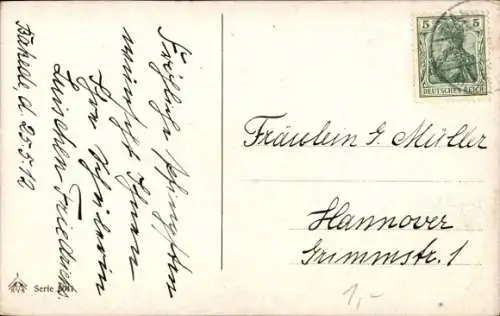 Fröhliche Pfingsten
wünscht Ihnen
Ihre Schülerin
Luischen Friedrichs.
d. 25.5.12
Serie
5 5
DEUTSCHES REICH
Fräulein G. Müller
Hannover
Grimmstr. 1
1,-